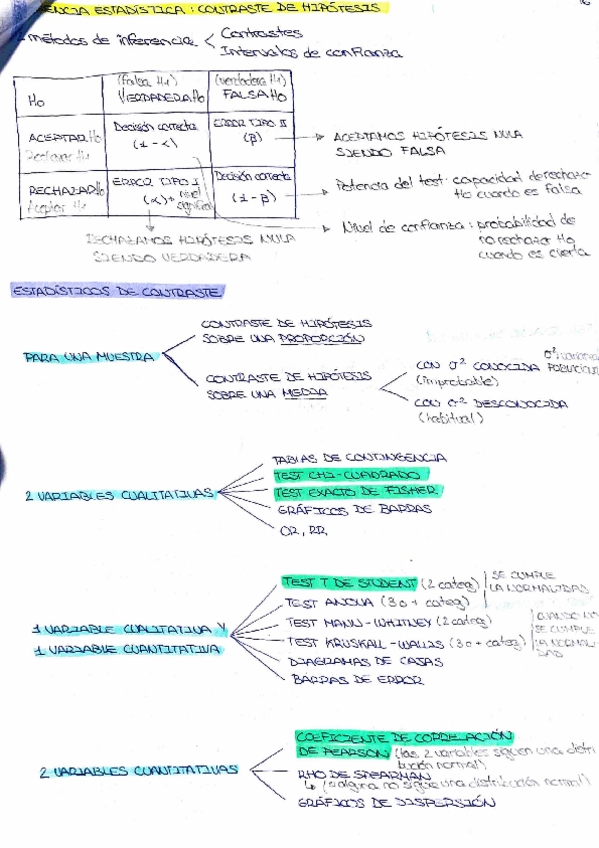 ENCIA ESTADÍSTICA : CONTRASTE DE HIPÓTESIS
métodos de inferencia < Contrastes
Intervalos de confianza
Ho
(falsa H1) VERDADERA Ho
(verdadera H1) FALSA Ho
ACEPTAR Ho
Rechazar H1
Decisión correcta
(1 - α)
ERROR TIPO II
(β)
→ ACEPTAMOS HIPÓTESIS NULA
SIENDO FALSA
RECHAZAR Ho
Aceptar H1
ERROR TIPO I
(α) → nivel
Decisión correcta
(1 - β)
→ Potencia del test: capacidad de rechazar
Ho cuando es falsa
→ Nivel de confianza : probabilidad de
no rechazar Ho
cuando es cierta
RECHAZAMOS HIPÓTESIS NULA
SIENDO VERDADERA
ESTADÍSTICOS DE CONTRASTE
PARA UNA MUESTRA
CONTRASTE DE HIPÓTESIS
SOBRE UNA PROPORCIÓN
CONTRASTE DE HIPÓTESIS
SOBRE UNA MEDIA
CON σ² CONOCIDA
(improbable)
CON σ² DESCONOCIDA
(habitual)
2 VARIABLES CUALITATIVAS
TABLAS DE CONTINGENCIA
TEST CHI-CUADRADO
TEST EXACTO DE FISHER
GRÁFICOS DE BARRAS
OR, RR
1 VARIABLE CUALITATIVA Y
1 VARIABLE CUANTITATIVA
TEST T DE STUDENT (2 categ)
TEST ANOVA (3 o + categ)
SE CUMPLE
LA NORMALIDAD
TEST MANN-WHITNEY (2 categ)
TEST KRUSKALL-WALLIS (3 o + categ)
CUANDO NO
SE CUMPLE
LA NORMALI-
DAD
DIAGRAMAS DE CAJAS
BARRAS DE ERROR
2 VARIABLES CUANTITATIVAS
COEFICIENTE DE CORRELACIÓN
DE PEARSON (las 2 variables siguen una distri
bución normal)
RHO DE SPEARMAN
↳ (si alguna no sigue una distribución normal)
GRÁFICOS DE DISPERSIÓN